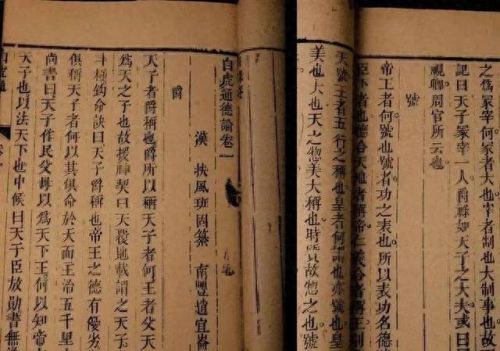 之爲冢宰何冢者大也宰者制也大制事也故
記曰天子冢宰一人爵祿如天子之大夫或曰
視卿周官所云也
號
帝王者何號也號者功之表也所以表功名德
臣下者也德合天地者稱帝仁義合者稱王别
天號王者五行之稱也皇者何謂也亦號也皇
美也大也天之總美大稱也時質故總之也號
白虎通德論卷一
漢 扶風班固纂 南豐趙宜崙
爵
天子者爵稱也爵所以稱天子者何王者父天
爲天之子也故援神契曰天覆地載謂之天子
斗極鈎命訣曰天子爵稱也帝王之德有優劣
俱稱天子者何以其俱命於天而王治五千里
尚書曰天子作民父母以爲天下王何以知帝
天子也以法天下也中候曰天子臣放勛書無
白虎通